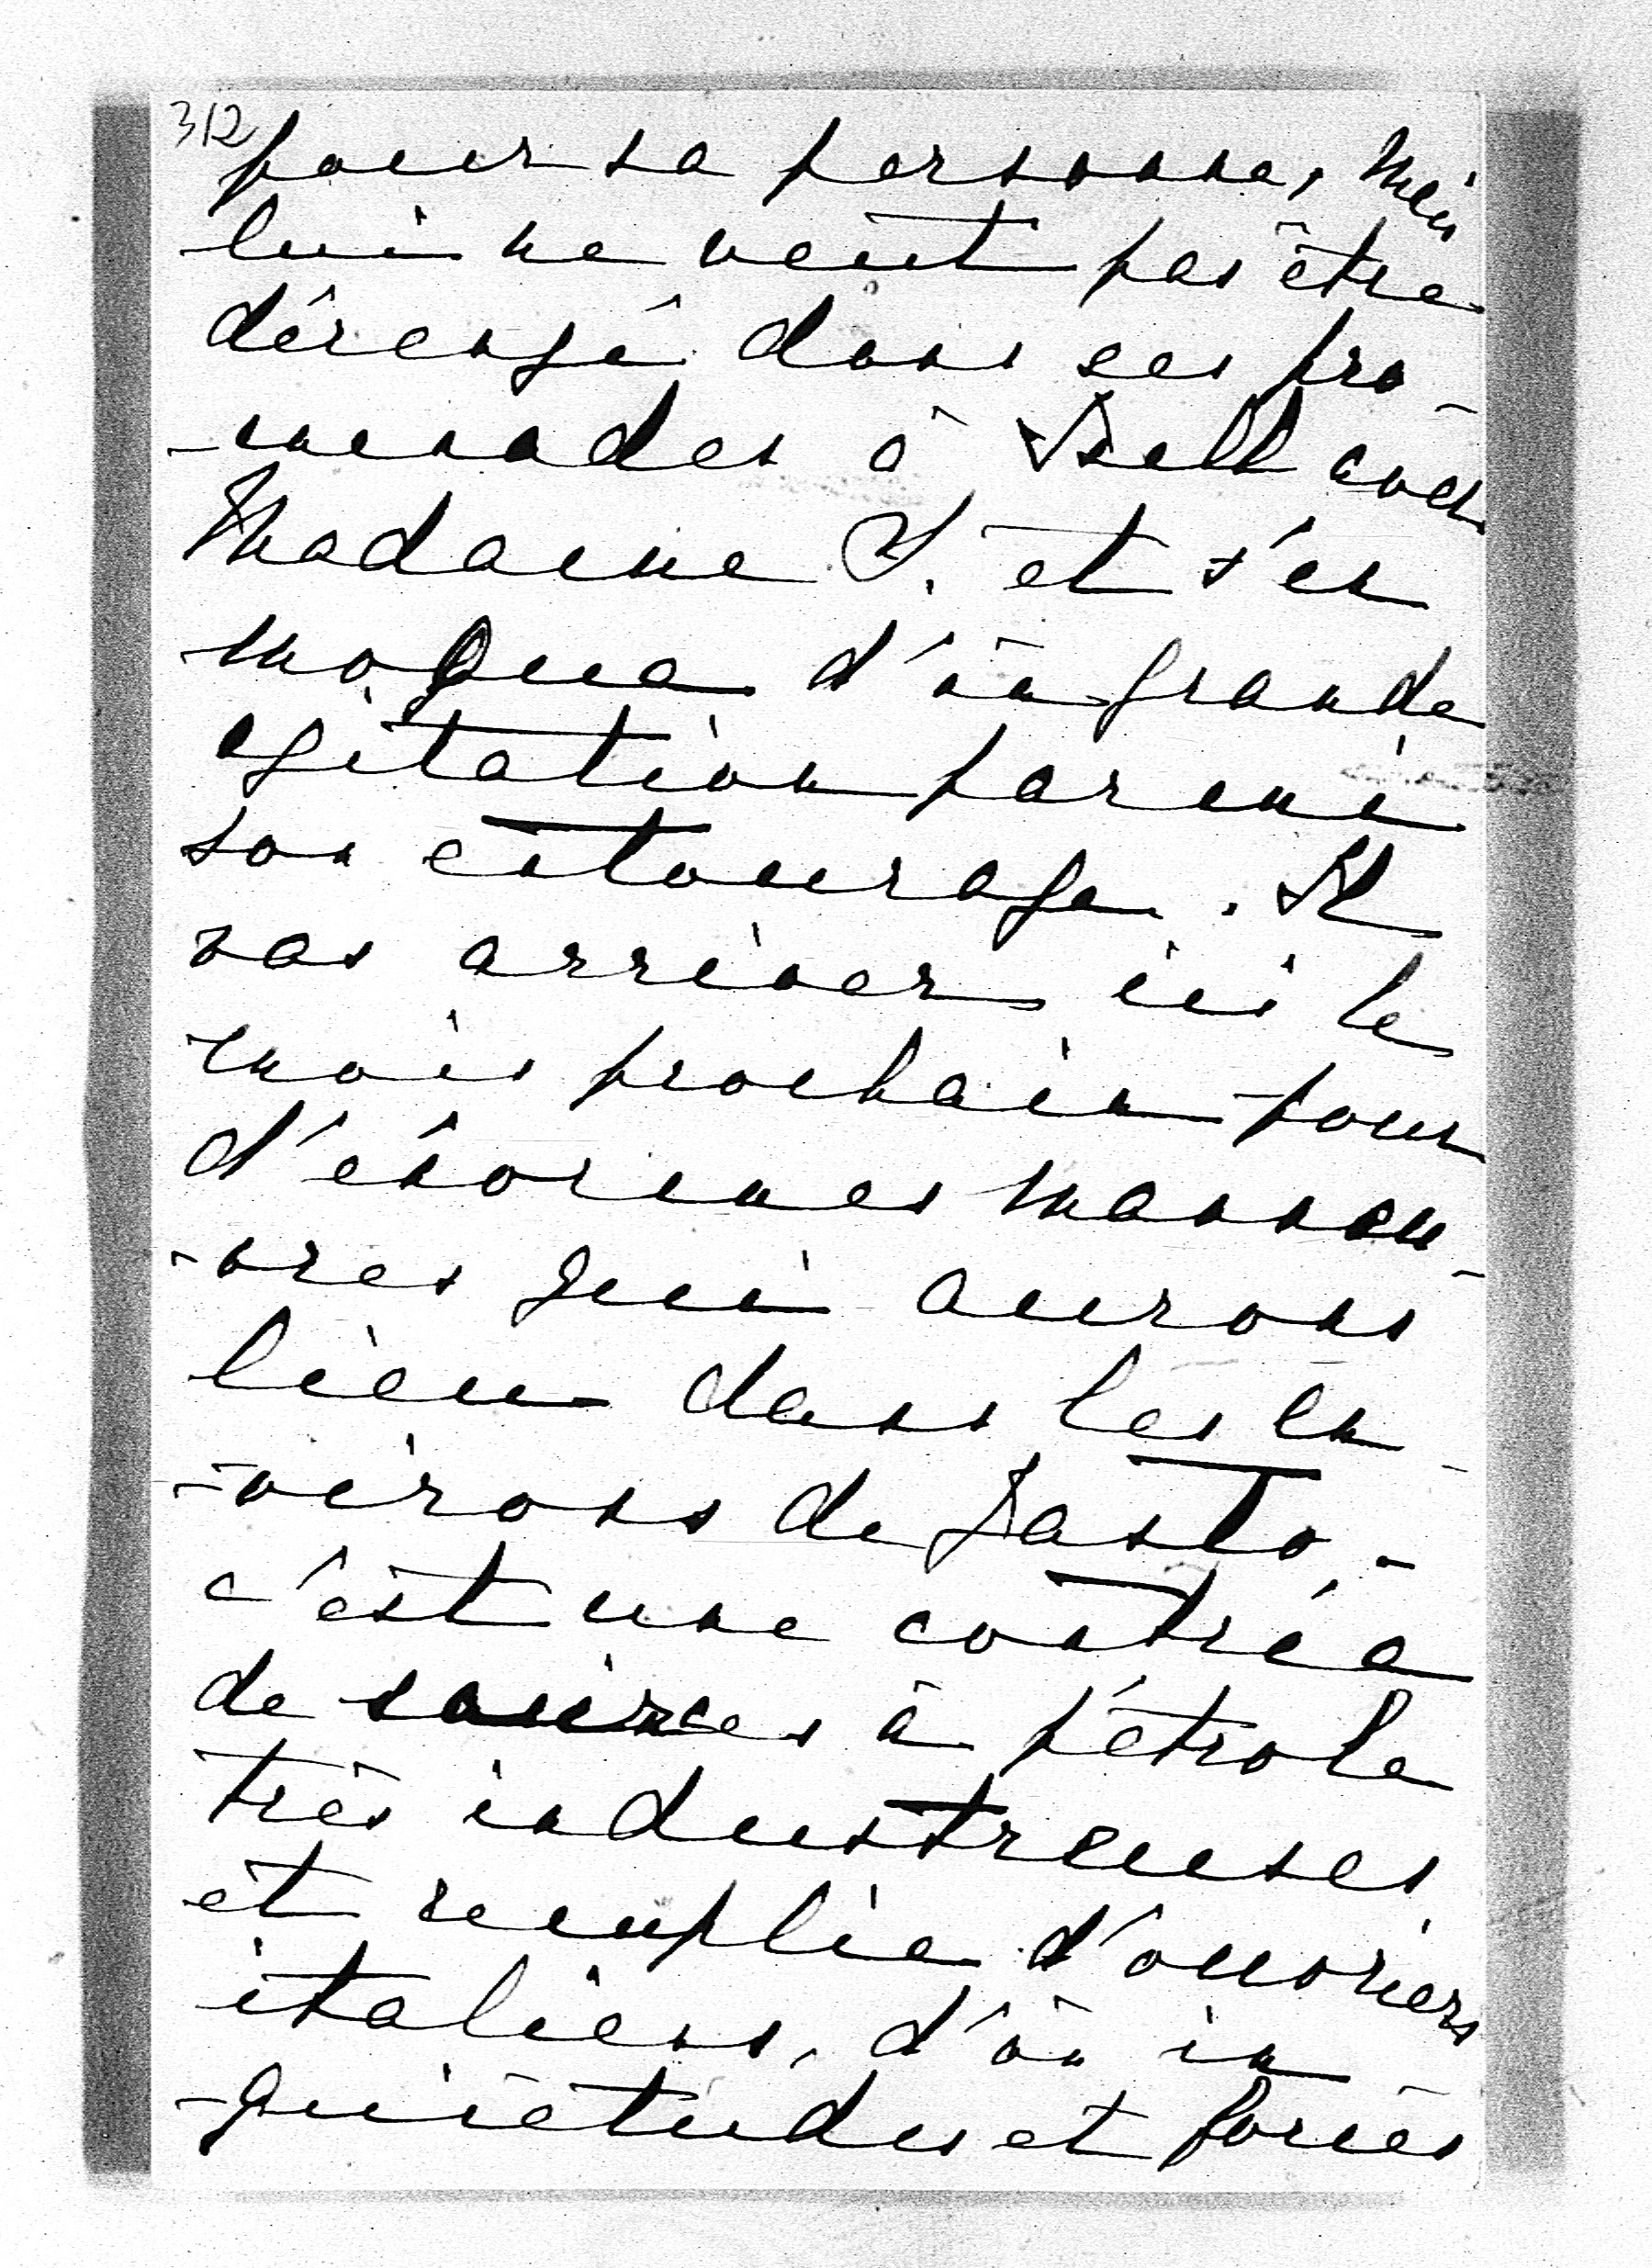 312
pour sa personne, mais
lui ne veut pas être
dérangé dans ses pro-
-menades à Ischl avec
Madame S. et s'en
moque d'où grande
agitation parmi
son entourage. Il
vas arriver ici le
mois prochain pour
d'énormes manœu-
-vres qui aurons
lieu dans les en-
-virons de Jasło -
c'est une contrée
de sources à pétrole
très industreuses
et remplie d'ouvriers
italiens, d'où in
-quiétudes et